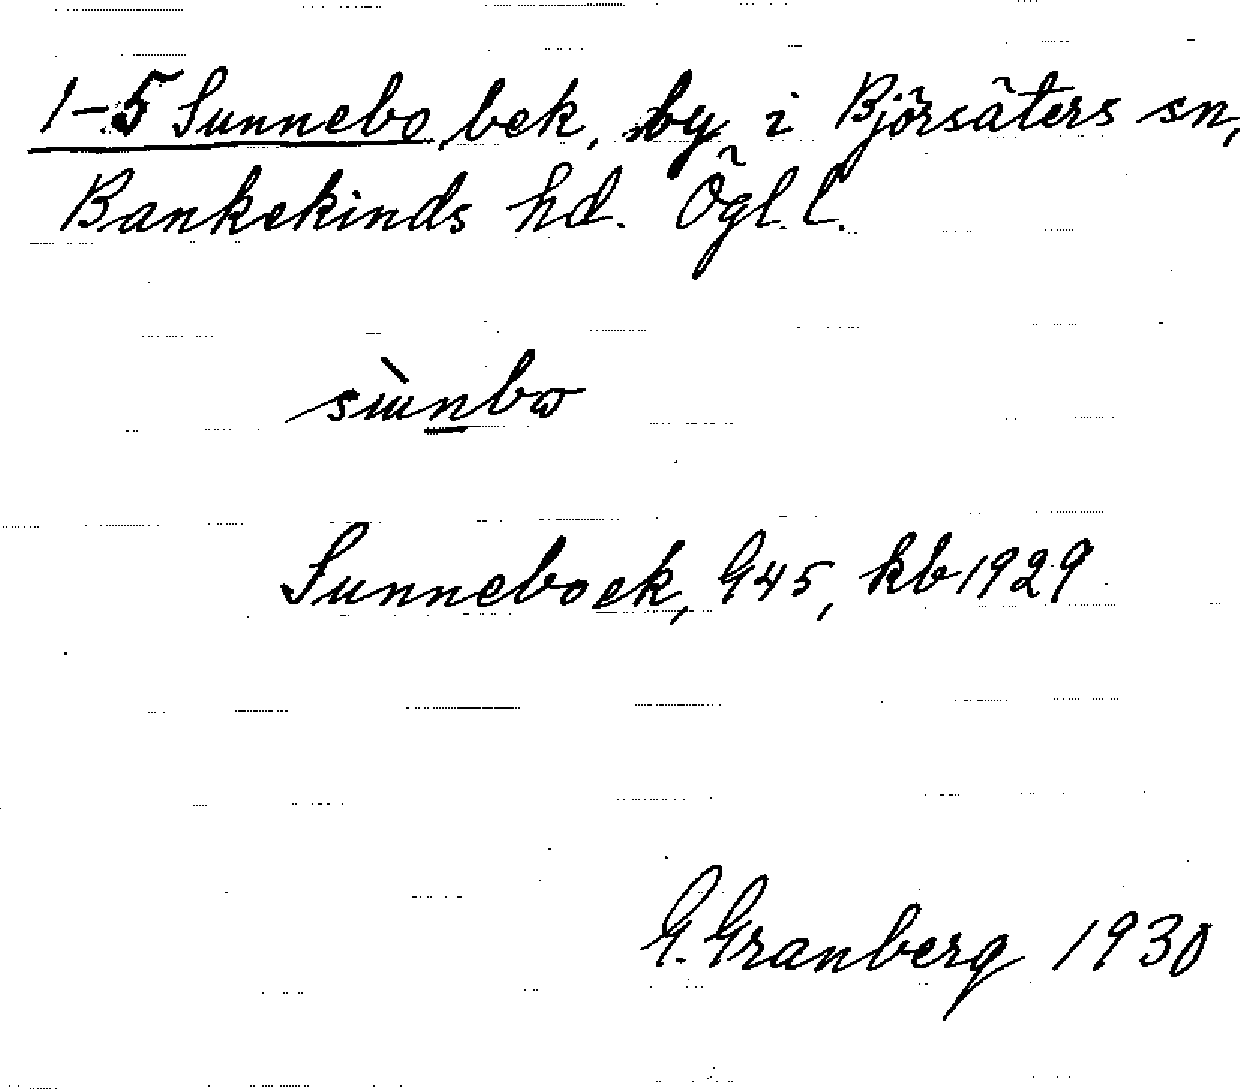 1-5 Sunnebo, bek, by i Björsäters sn,
Bankekinds hd. Ögl. l.
Sunnebo ek, G45, kb 1929
G. Granberg 1930